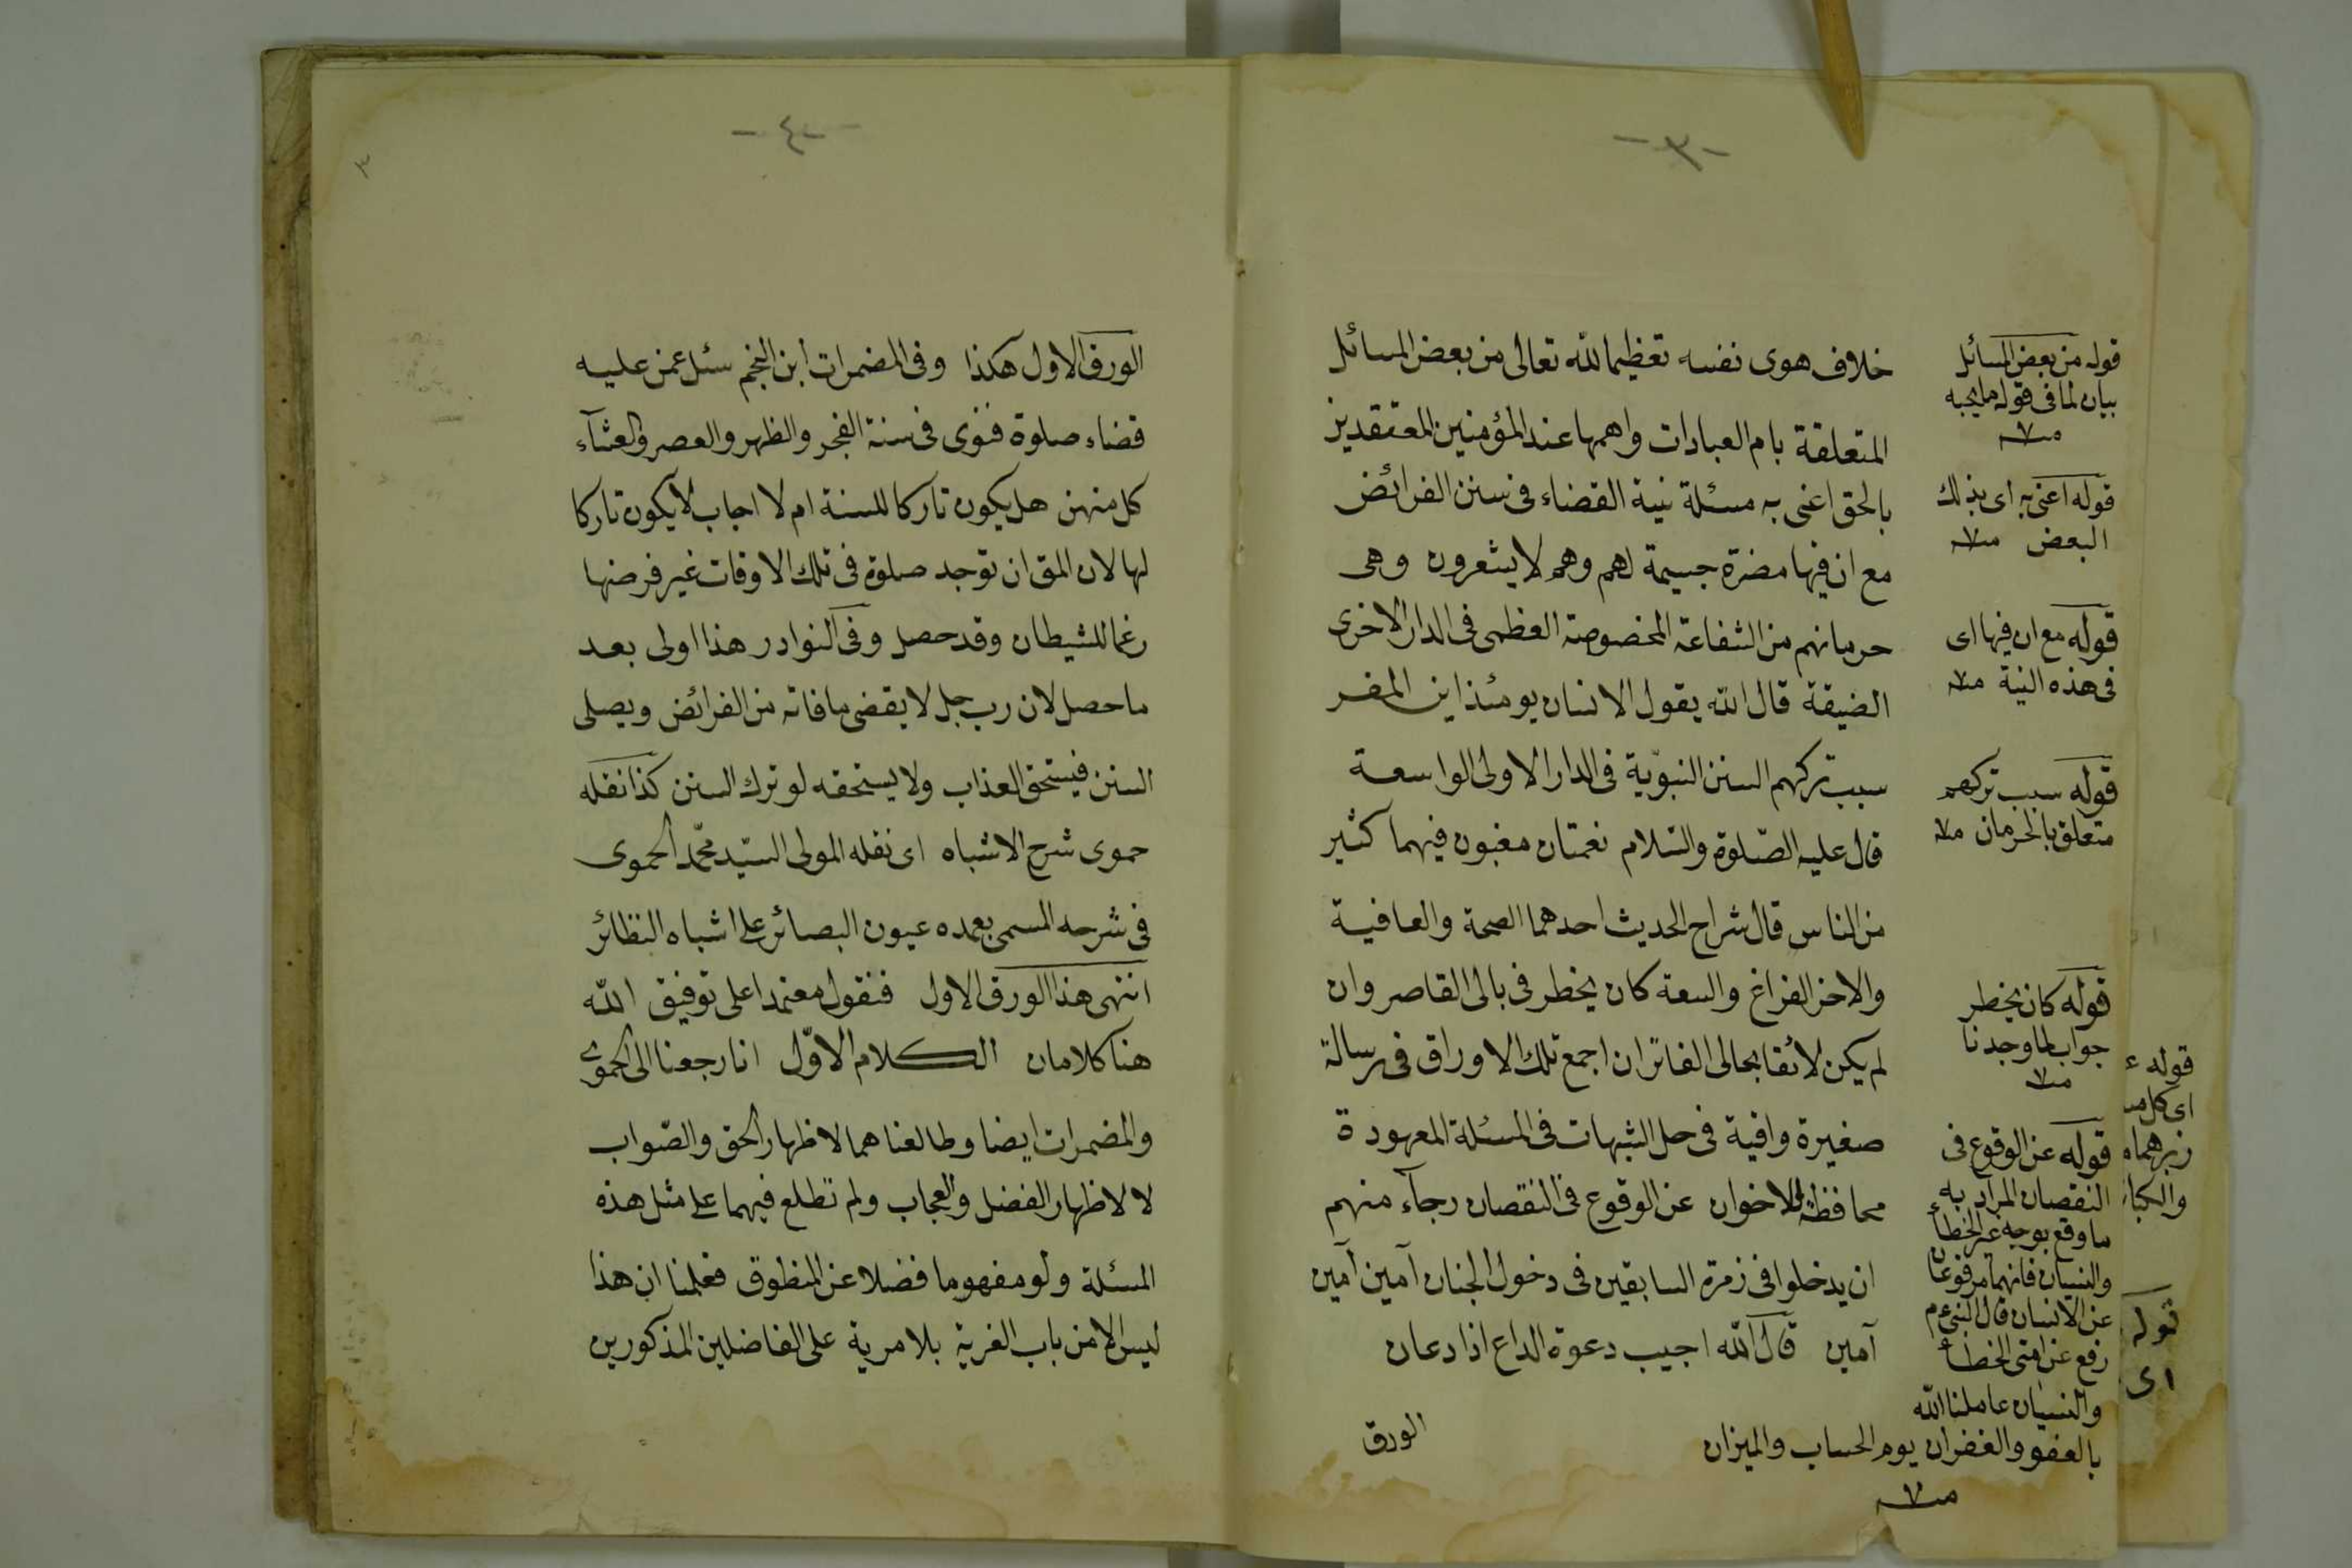 -٣-
خلاف هوى نفسه تعظيما لله تعالى من بعض المسائل
المتعلقة بام العبادات واهمها عند المؤمنين المعتقدين
بالحق اعنى به مسئلة نية القضاء فى سنن الفرائض
مع ان فيها مضرة جسيمة لهم وهم لا يشعرون وهى
حرمانهم من الشفاعة المخصوصة العظمى فى الدار الاخرى
الضيقة قال الله يقول الانسان يومئذ اين المفر
سبب تركهم السنن النبوّية فى الدار الاولى الواسعة
قال عليه الصّلوة والسّلام نعمتان مغبون فيهما كثير
من الناس قال شراح الحديث احدهما الصحة والعافية
والاخر الفراغ والسعة كان يخطر فى بالى القاصر وان
لم يكن لائقا بحالى الفاتر ان اجمع تلك الاوراق فى رسالة
صغيرة وافية فى حل الشبهات فى المسئلة المعهودة
محافظة للاخوان عن الوقوع فى النقصان رجآء منهم
ان يدخلوا فى زمرة السابقين فى دخول الجنان آمين آمين
آمين قال الله اجيب دعوة الداع اذا دعان
الورق
قوله من بعض المسائل
بيان لما فى قوله ما يجبه
منه
قوله اعنى به اى بذلك
البعض منه
قوله مع ان فيها اى
فى هذه النية منه
قوله سبب تركهم
متعلق بالحرمان منه
قوله كان يخطر
جواب لما وجدنا
منه
قوله عن الوقوع فى
النقصان المراد به
ما وقع بوجه غير الخطأ
والنسيان فانهما مرفوعان
عن الانسان قال النبى عم
رفع عن امتى الخطأ
والنسيان عاملنا الله
بالعفو والغفران يوم الحساب والميزان
منه
قوله
اى كل
قوله
اى
-٤-
٣
الورق الاول هكذا وفى المضمرات ابن النجم سئل عمن عليه
قضاء صلوة فنوى فى سنة الفجر والظهر والعصر والعشآء
كل منهن هل يكون تاركا للسنة ام لا اجاب لا يكون تاركا
لها لان المق ان توجد صلوة فى تلك الاوقات غير فرضها
رغما للشيطان وقد حصل وفى النوادر هذا اولى بعد
ما حصل لان رب جل لا يقضى ما فاته من الفرائض ويصلى
السنن فيستحق العذاب ولا يستحقه لو ترك السنن كذا نقله
حموى شرح الاشباه اى نقله المولى السيّد محمّد الحموى
فى شرحه المسمى بعمده عيون البصائر على اشباه النظائر
انتهى هذا الورق الاول فنقول معتمدا على توفيق الله
هنا كلامان الكلام الاوّل انا رجعنا الى الحموى
والمضمرات ايضا وطالعناهما لاظهار الحق والصّواب
لا لاظهار الفضل والعجاب ولم تطلع فيهما على مثل هذه
المسئلة ولو مفهوما فضلا عن المنطوق فعلمنا ان هذا
ليس الا من باب الفرية بلا مرية على الفاضلين المذكورين